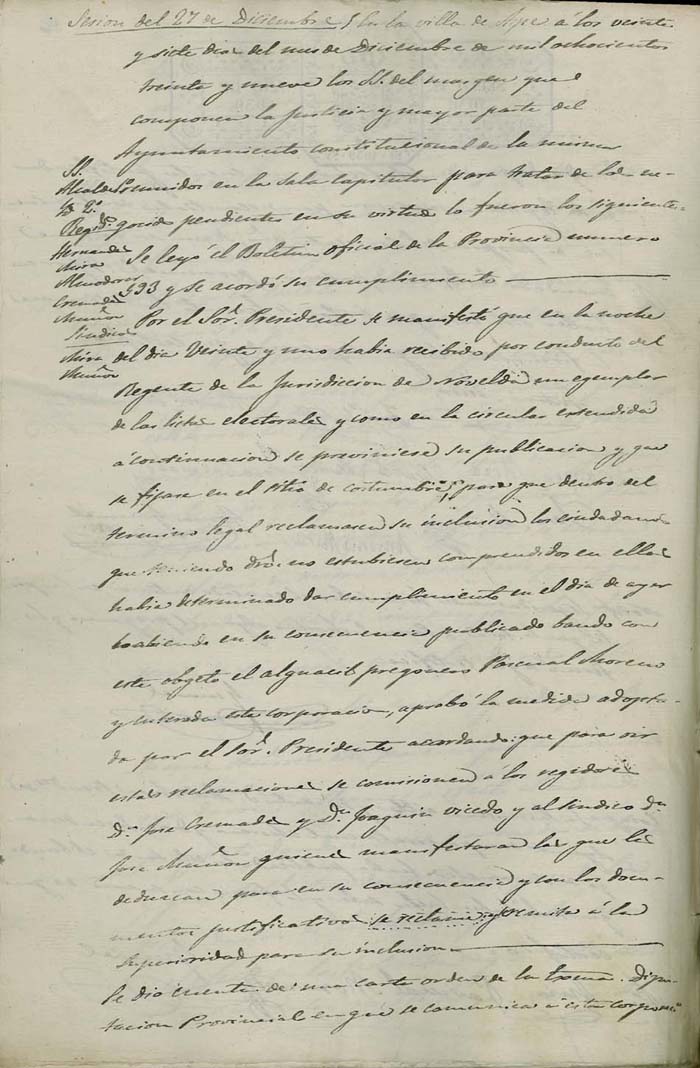 Sesion del 27 de Diciembre / En la villa de Aspe á los veinte
y siete dias del mes de Diciembre de mil ochocientos
treinta y nueve los SS. del margen que
componen la Justicia y mayor parte del
Ayuntamiento constitucional de la misma
SS.
Alcaldes
1º y 2º
Regidˢ
Hernandez
Mira
Almodovar
Cremades
Muñoz
Sindicos
Mira
Muñoz
reunidos en la Sala Capitular para tratar de los ne-
gocios pendientes en su virtud lo fueron los siguientes
Se leyó el Boletin Oficial de la Provincia numero
593 y se acordó su cumplimiento
Por el Sor. Presidente se manifestó que en la noche
del dia Veinte y uno habia recibido por conducto del
Regente de la Jurisdiccion de Novelda un egemplar
de las listas electorales y como en la circular estendida
á continuacion se previniese su publicacion y que
se fijase en el sitio de costumbre, para que dentro del
termino legal reclamasen su inclusion los ciudadanos
que teniendo dró. no estubiesen comprendidos en ellas
habia determinado dar cumplimiento en el dia de ayer
habiendo en su consecuencia publicado bando con
este obgeto el alguacil pregonero Pascual Moreno
y enterada esta corporacion, aprobó la medida adopta-
da por el Sor. Presidente acordando: que para oir
estas reclamaciones se comisionen á los regidores
Dⁿ Jose Cremades y Dⁿ Joaquin Vicedo y al Sindico Dⁿ
Jose Muñoz quienes manifestaran las que se
deduzcan para en su consecuencia y con los docu-
mentos justificativos se reclame y remita á la
Superioridad para su inclusion
Se dió cuenta de una carta orden de la Exma. Dipu-
tacion Provincial en que se comunica á esta corporacⁿ